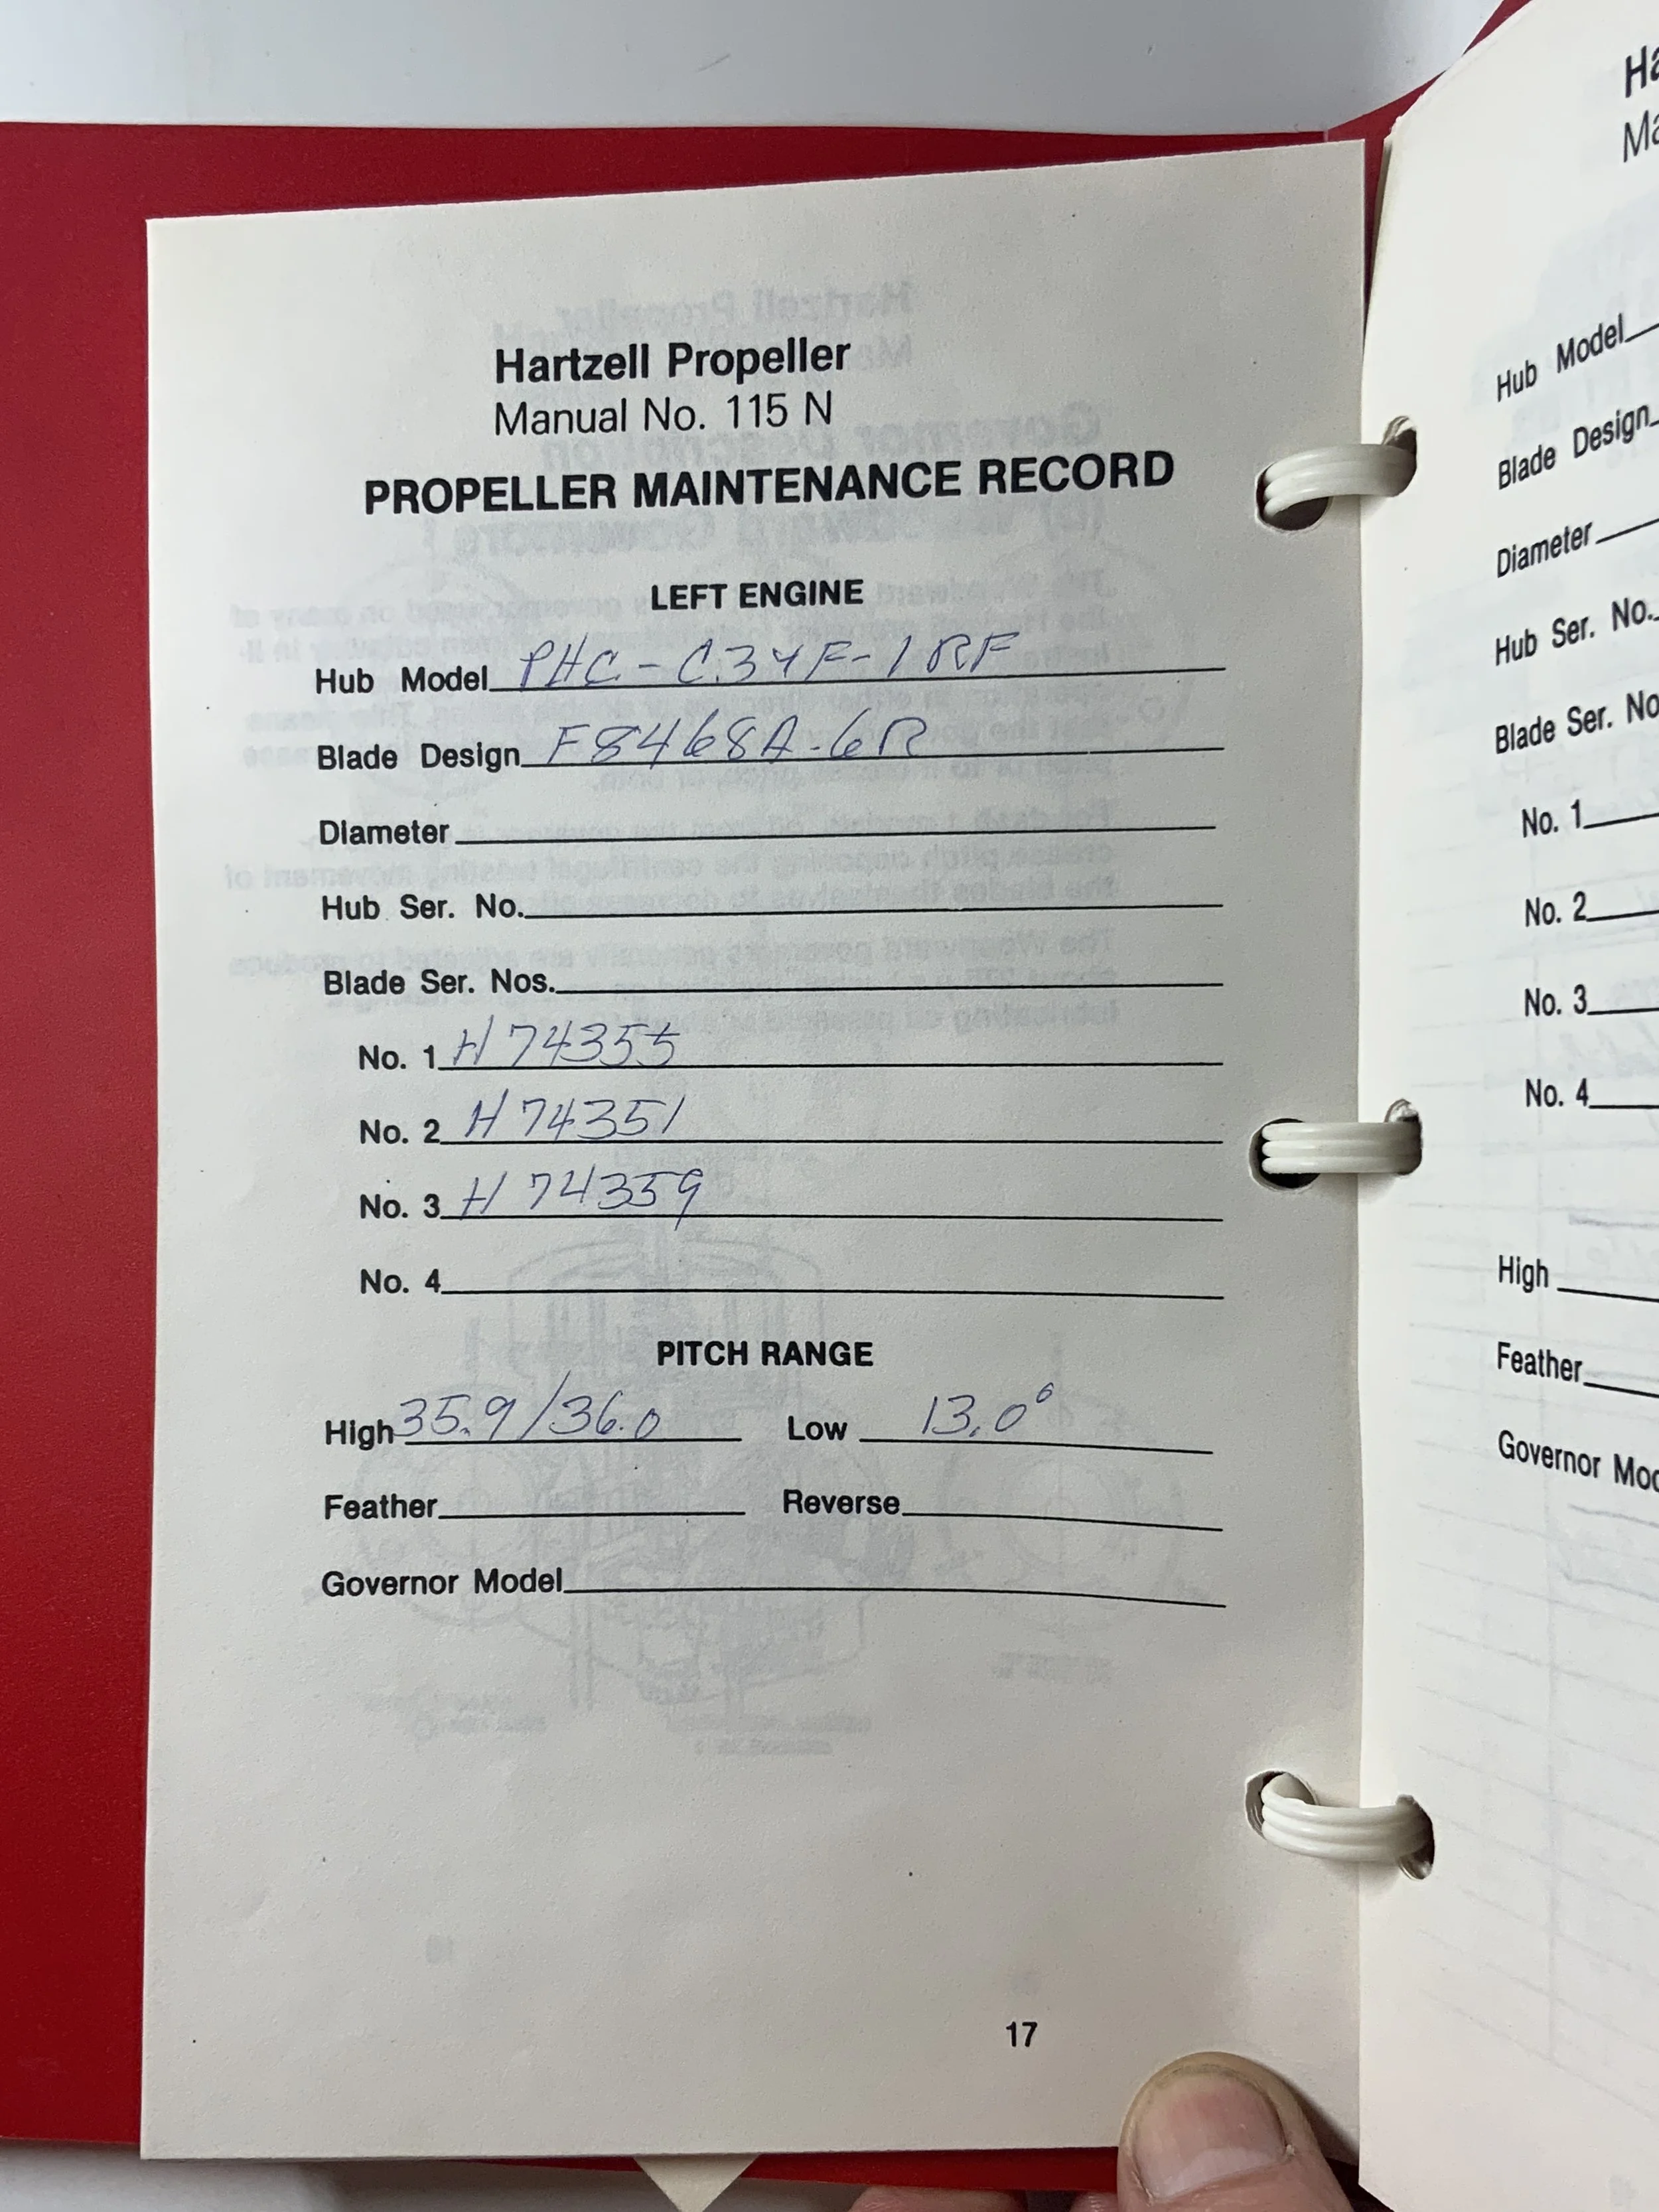 Hartzell Propeller
Manual No. 115 N
PROPELLER MAINTENANCE RECORD
LEFT ENGINE
Hub Model PHC-C3YF-1RF
Blade Design F8468A-6R
Diameter
Hub Ser. No.
Blade Ser. Nos.
No. 1 H74355
No. 2 H74351
No. 3 H74359
No. 4
PITCH RANGE
High 35.9/36.0 Low 13.0°
Feather Reverse
Governor Model
17
Ha
Ma
Hub Model
Blade Design
Diameter
Hub Ser. No.
Blade Ser. No
No. 1
No. 2
No. 3
No. 4
High
Feather
Governor Mod